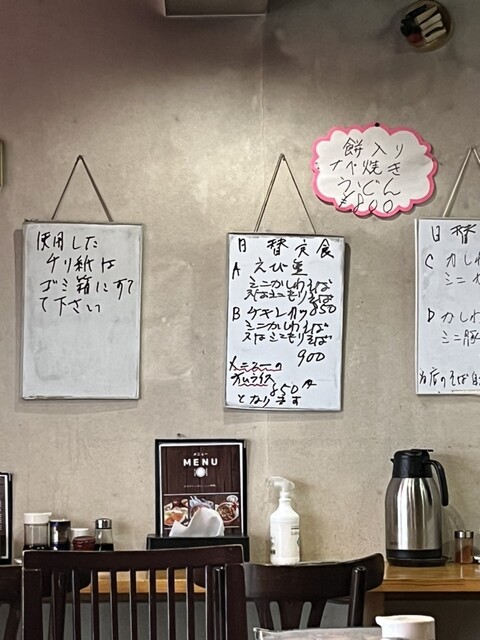 使用した
チリ紙は
ゴミ箱にすて
て下さい
日替定食
A えび重
ミニかしわそば
又はミニもりそば
850
B チキンカツ
ミニかしわそば
又はミニもりそば
900
メニューの
オムライス
850円
となります
餅入り
ナベ焼き
うどん
¥800
日替
C かしわ
ミニ
D かしわ
ミニ豚
当店のそば
メニュー
MENU